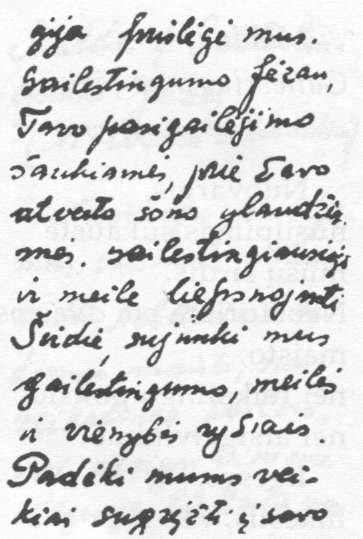 gija prislėgė mus.
Gailestingumo Jėzau,
Tavo pasigailėjimo
šaukiamės, prie Tavo
atverto šono glaudžia-
mės. Gailestingiausioji
ir meile liepsnojanti
Širdie, sujunki mus
gailestingumo, meilės
ir vienybės ryšiais.
Padėki mums vei-
kiai sugrįžti į savo